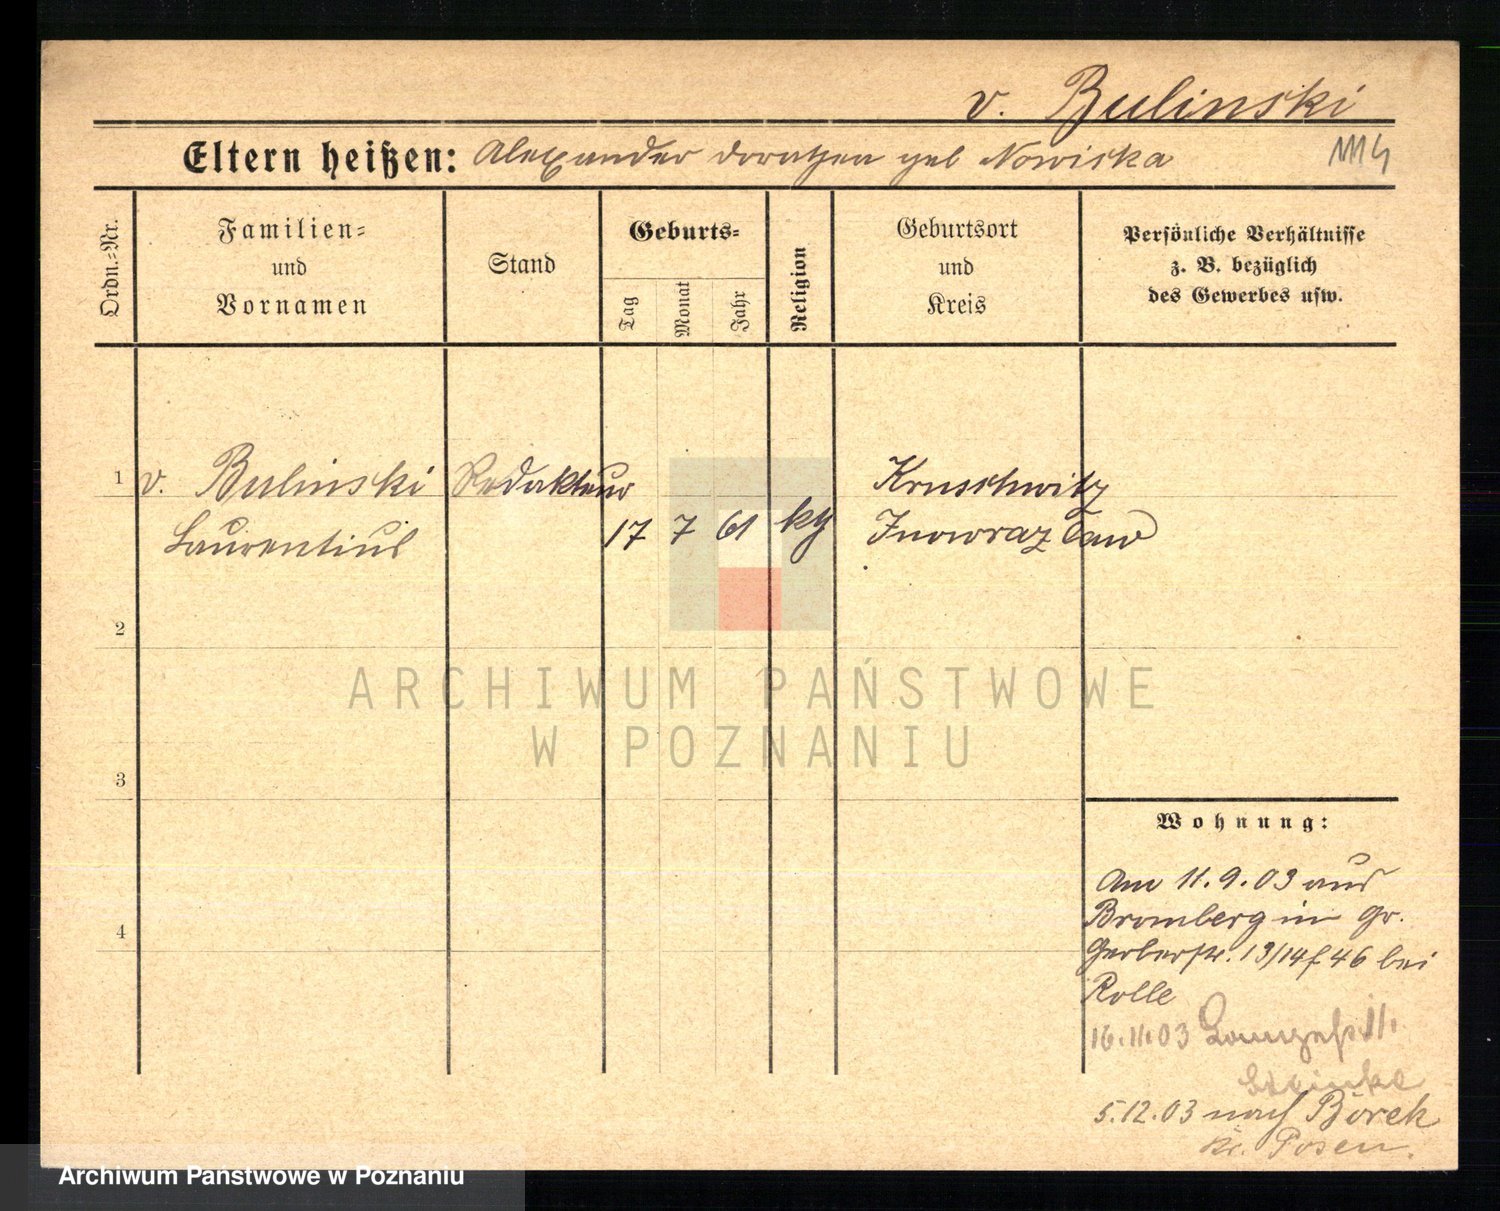 v. Bulinski
Eltern heißen: Alexander Dorothea geb Nowiska
1114
Ordn.-Nr.
Familien-
und
Vornamen
Stand
Geburts-
Tag
Monat
Jahr
Religion
Geburtsort
und
Kreis
Persönliche Verhältnisse
z. B. bezüglich
des Gewerbes usw.
1 v. Bulinski Redakteur Kruschwitz
Laurentius 17 7 61 kth Inowrazlaw
2
ARCHIWUM PAŃSTWOWE
W POZNANIU
3
Wohnung:
Am 11.9.03 aus
Bromberg in Gr.
4
Gerberstr. 13/14 f 46 bei
Rolle
16.11.03 Langestr. 11.
5.12.03 nach Borek
Kr. Posen.
Archiwum Państwowe w Poznaniu